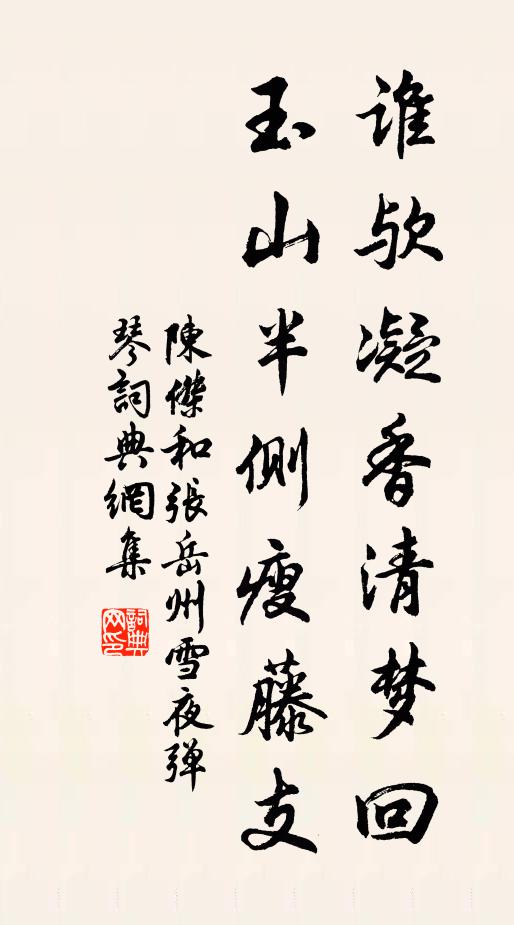 谁欤凝香清梦回
玉山半侧瘦藤支
陳傑和張岳州雪夜弹
琴詞典網集
詞典
网印